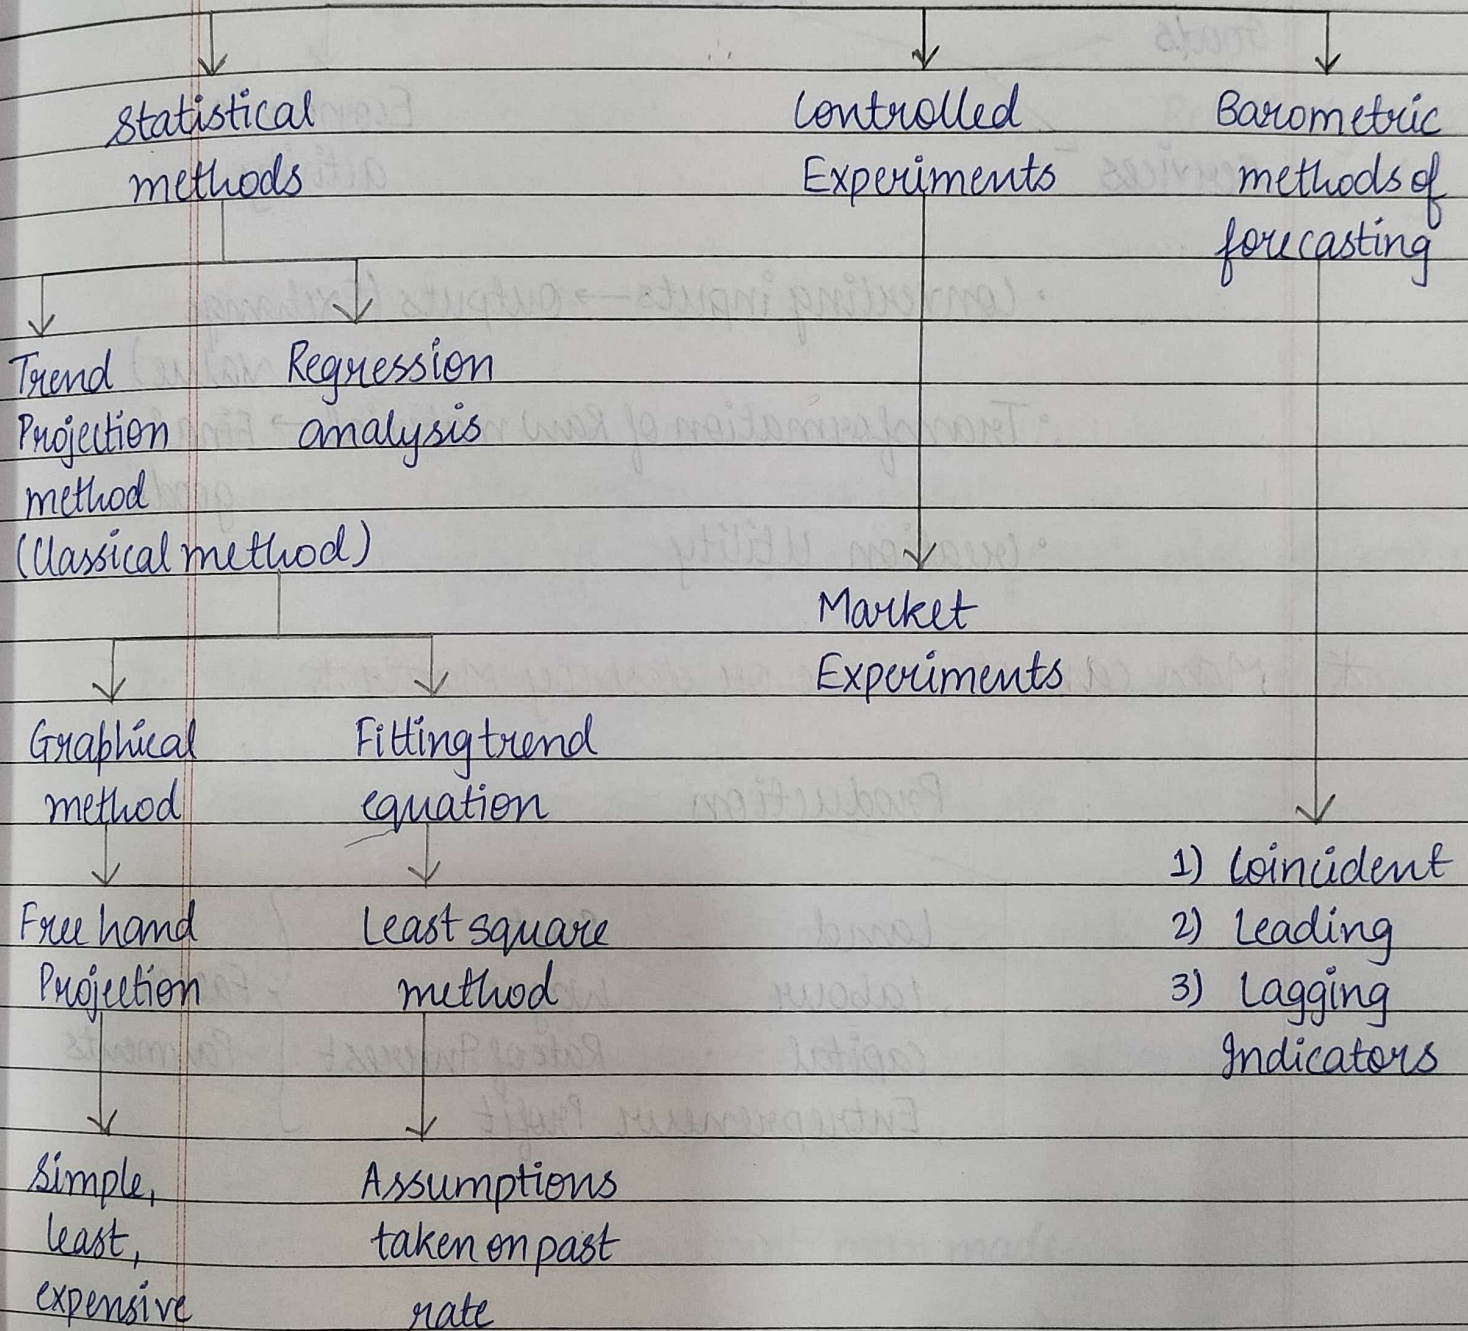 Statistical
methods
Controlled
Experiments
Barometric
methods of
forecasting
Trend
Projection
method
(Classical method)
Regression
analysis
Market
Experiments
Graphical
method
Fitting trend
equation
Free hand
Projection
Least square
method
1) Coincident
2) Leading
3) Lagging
Indicators
Simple,
least,
expensive
Assumptions
taken on past
rate